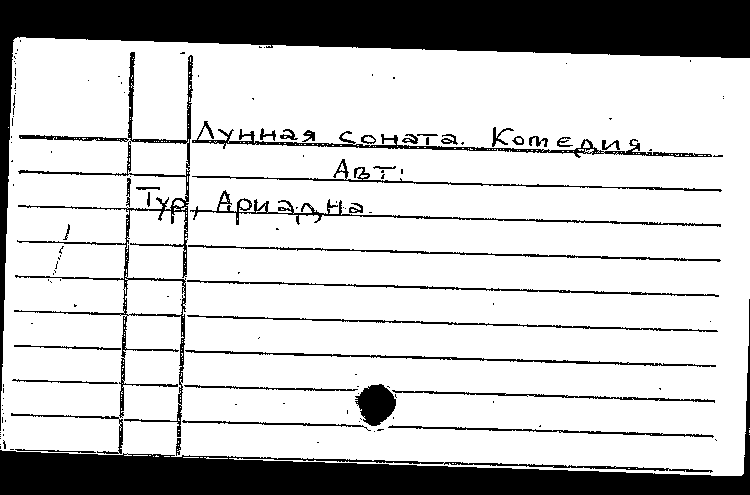 Лунная соната. Комедия.
Авт:
Тур, Ариадна.